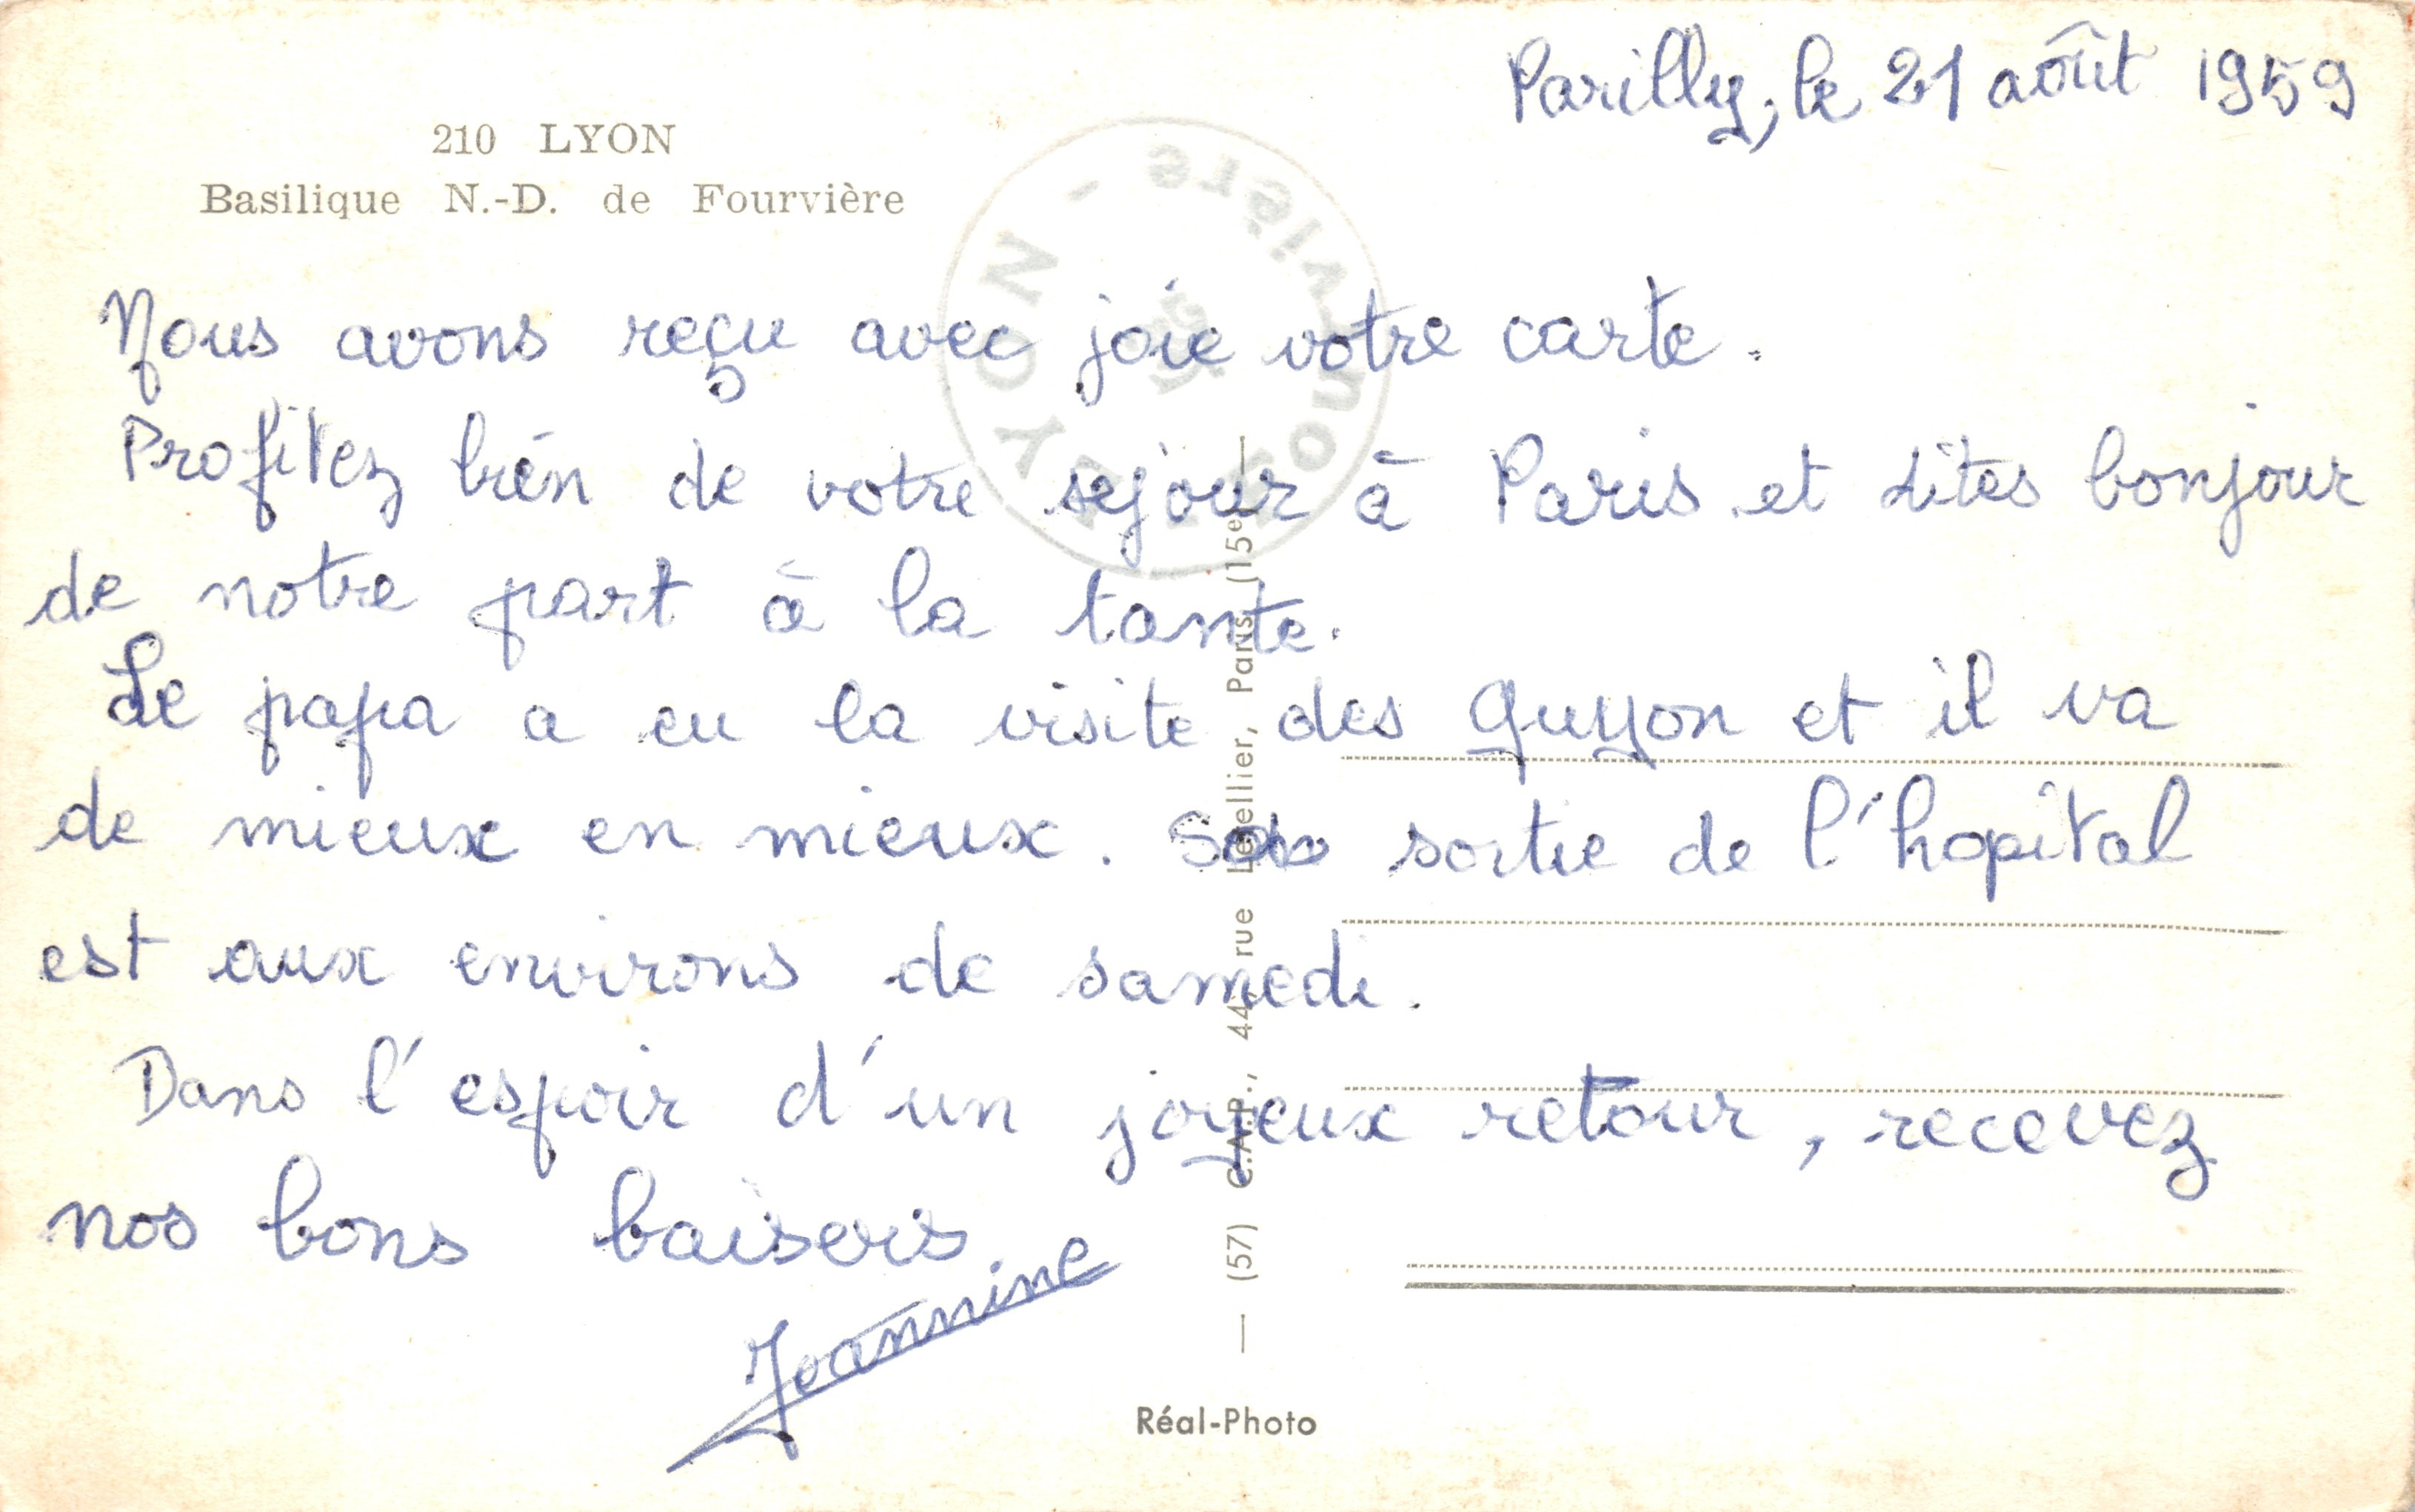 Parilly, le 21 août 1959
210 LYON
Basilique N.-D. de Fourvière
Fourvière - LYON
Nous avons reçu avec joie votre carte.
Profitez bien de votre sejour à Paris et dites bonjour
de notre part à la tante.
Le papa a eu la visite des Guyon et il va
de mieux en mieux. Sa sortie de l'hopital
est aux environs de samedi.
Dans l'espoir d'un joyeux retour, recevez
nos bons baisers
Jeannine
— (57) C.A.P., 44, rue Letellier, Paris (15e) —
Réal-Photo